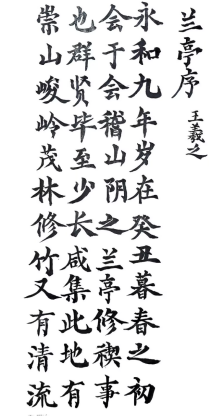 兰亭序
王羲之
永和九年岁在癸丑暮春之初
会于会稽山阴之兰亭修禊事
也群贤毕至少长咸集此地有
崇山峻岭茂林修竹又有清流